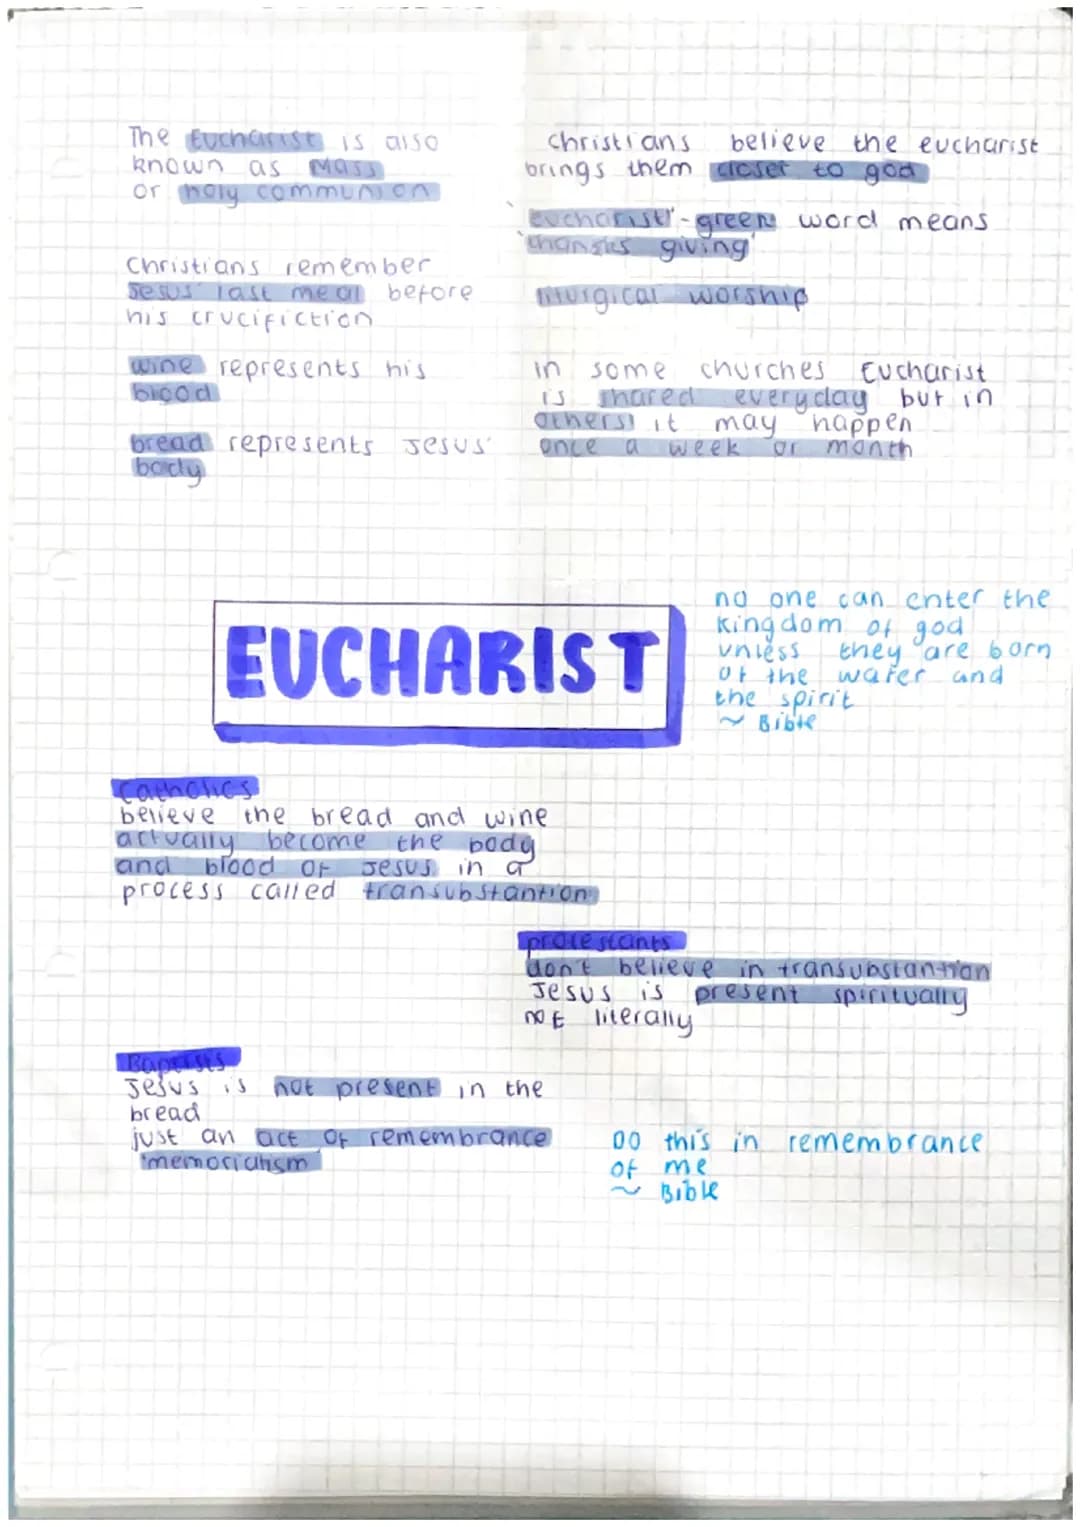 The Eucharist is also
known as Mass
or holy communion
Christians remember
Jesus' last meal before
his crucifiction
wine represents his
blood
bread represents Jesus'
body
Christians believe the eucharist
brings them closer to god
'eucharist' - green word means
'thanks giving'
liturgical worship
in some churches Eucharist
is shared everyday but in
others it may happen
once a week or month
EUCHARIST
no one can enter the
kingdom of god
unless they are born
of the water and
the spirit
~ Bible
Catholics
believe the bread and wine
actually become the body
and blood of Jesus in a
process called transubstantion
protestants
don't believe in transubstantion
Jesus is present spiritually
not literally
Baptists
Jesus is not present in the
bread
just an act of remembrance
'memorialism'
DO this in remembrance
of me
~ Bible